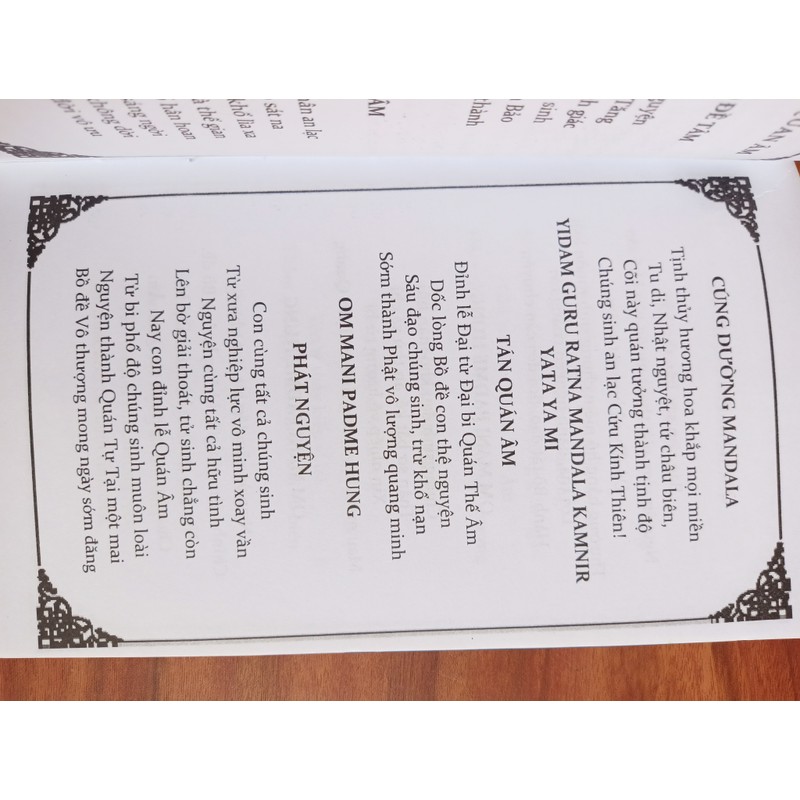 QUÁN ÂM
ĐỀ TÂM
Tăng
giác
sinh
Bảo
thành
ÂM
an lạc
sát na
khổ lìa xa
thế gian
hân hoan
sáng ngời
đời vô ưu
CÚNG DƯỜNG MANDALA
Tịnh thủy hương hoa khắp mọi miền
Tu di, Nhật nguyệt, tứ châu biên,
Cõi này quán tưởng thành tịnh độ
Chúng sinh an lạc Cứu Kính Thiên!
YIDAM GURU RATNA MANDALA KAMNIR
YATA YA MI
TÁN QUÁN ÂM
Đỉnh lễ Đại từ Đại bi Quán Thế Âm
Dốc lòng Bồ đề con thệ nguyện
Sáu đạo chúng sinh, trừ khổ nạn
Sớm thành Phật vô lượng quang minh
OM MANI PADME HUNG
PHÁT NGUYỆN
Con cùng tất cả chúng sinh
Từ xưa nghiệp lực vô minh xoay vần
Nguyện cùng tất cả hữu tình
Lên bờ giải thoát, tử sinh chẳng còn
Nay con đỉnh lễ Quán Âm
Từ bi phổ độ chúng sinh muôn loài
Nguyện thành Quán Tự Tại một mai
Bồ đề Vô thượng mong ngày sớm đăng